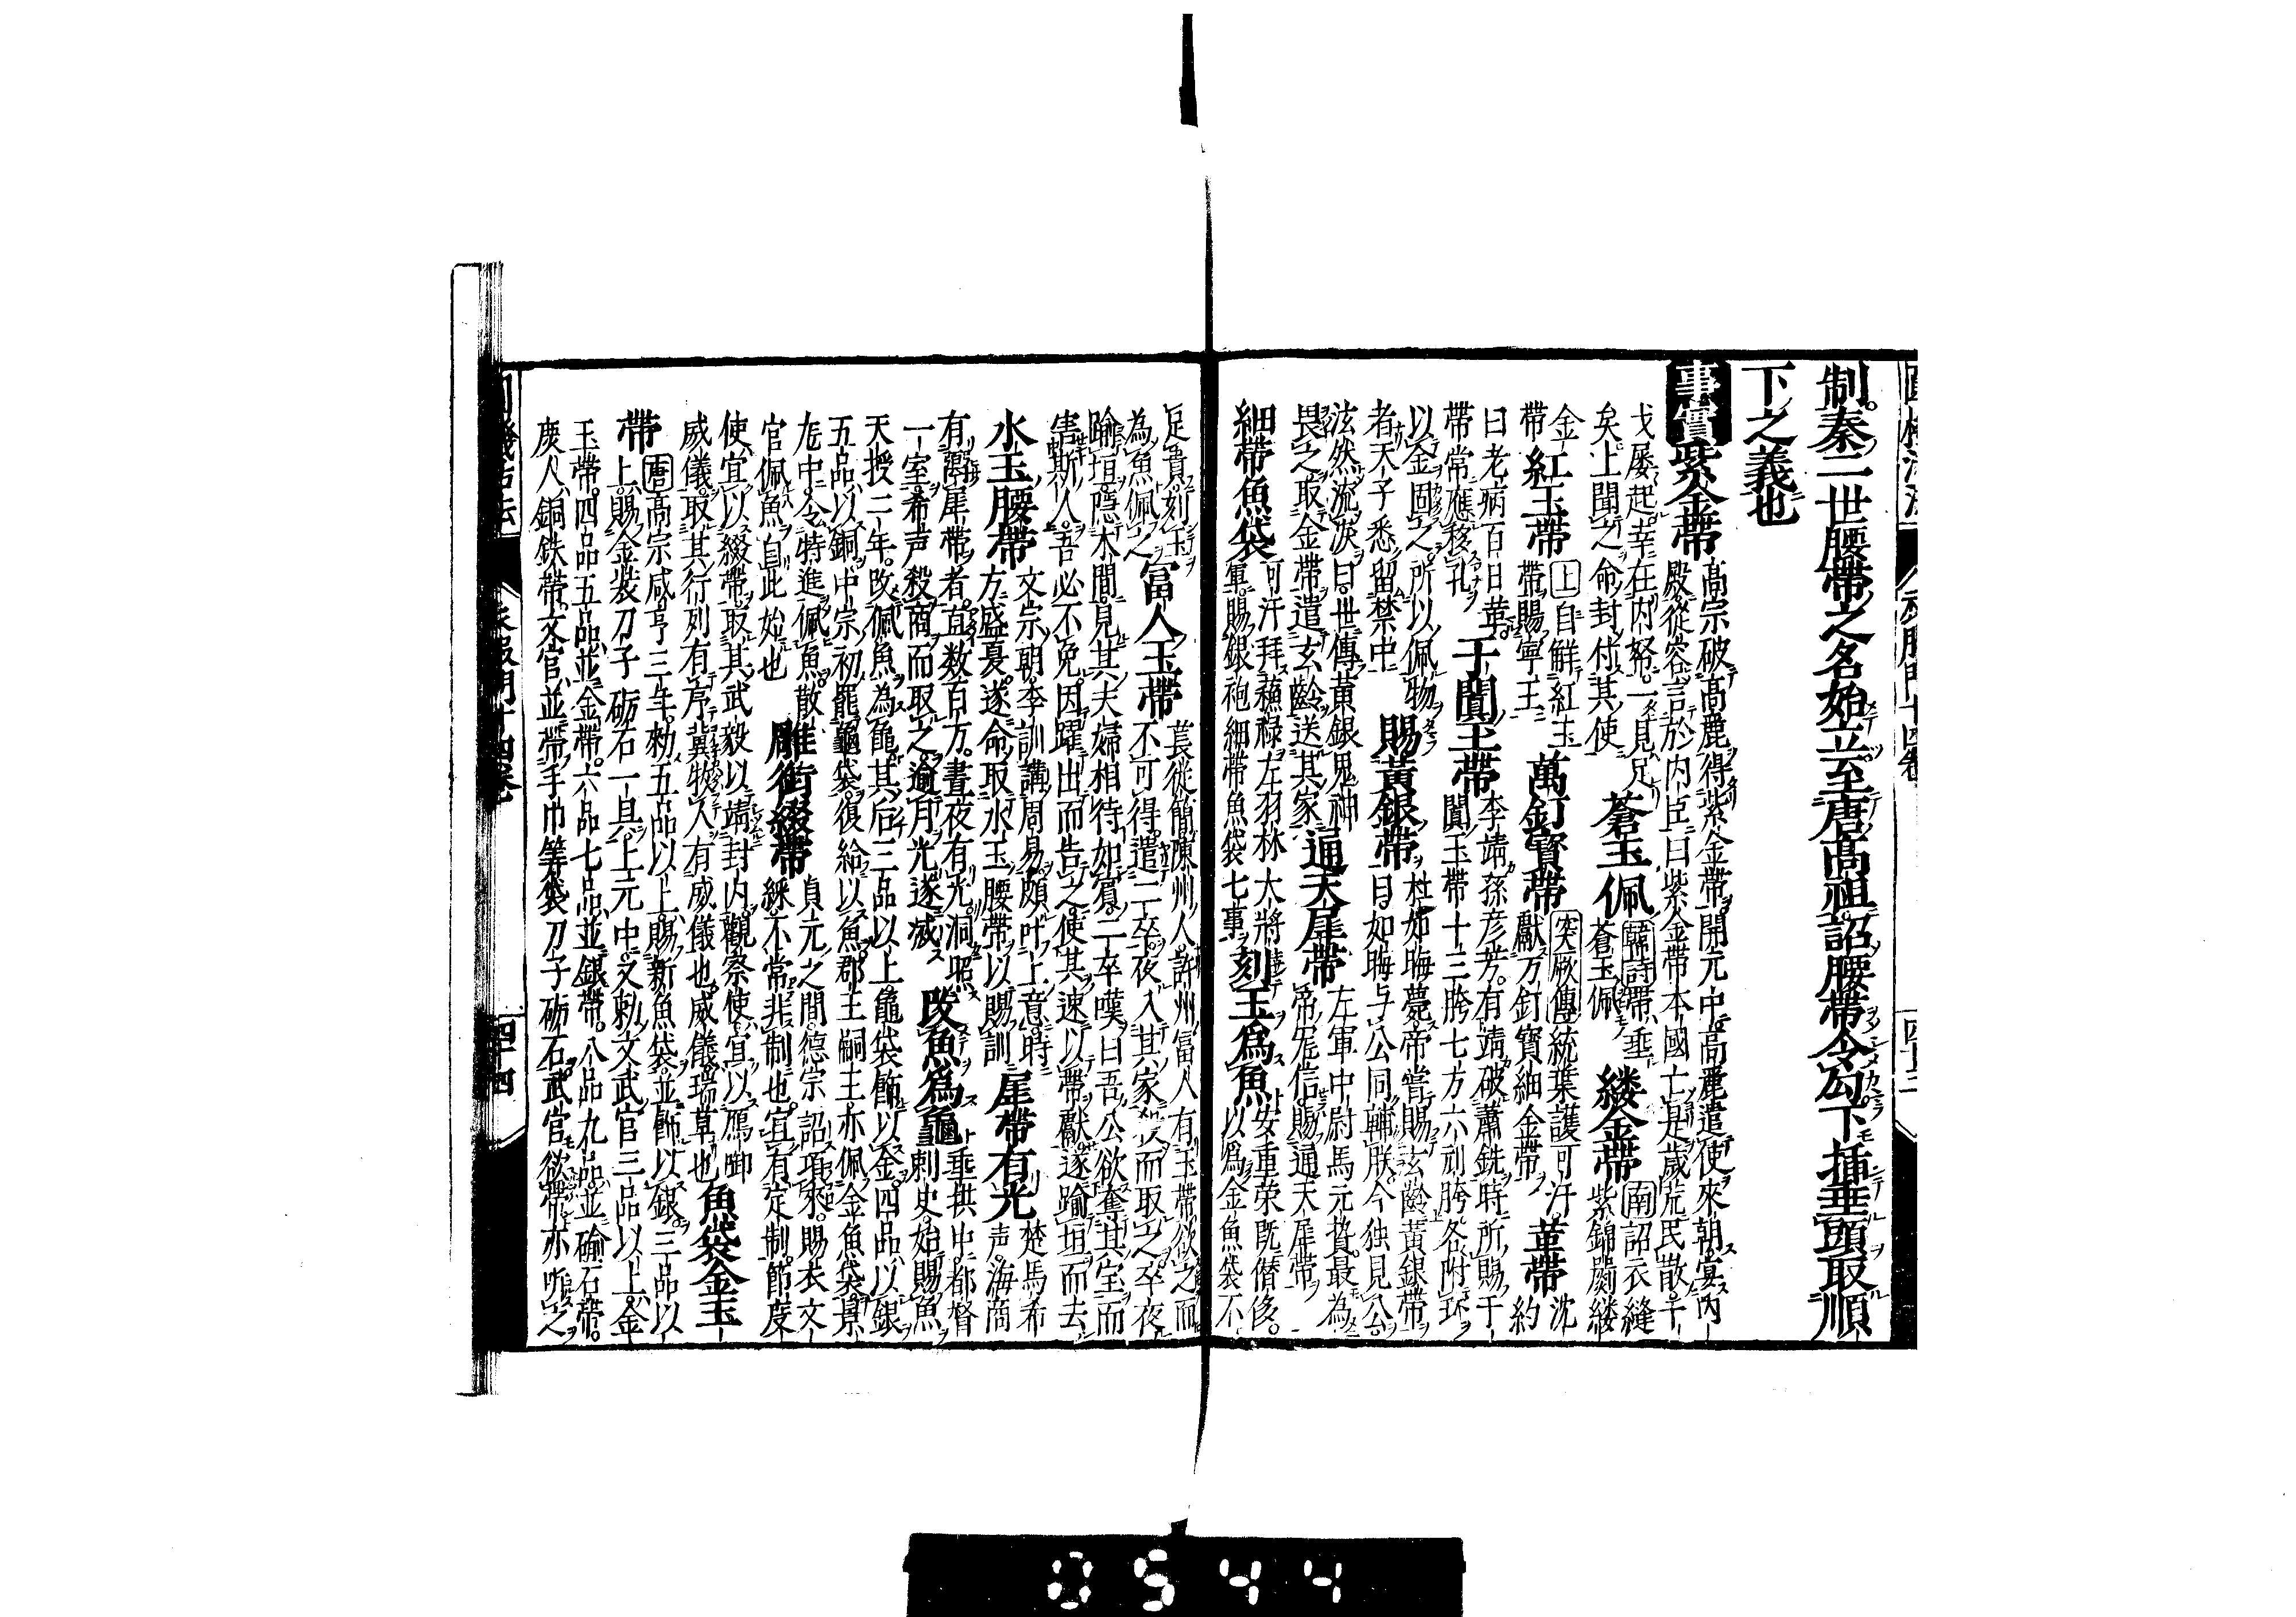 制秦二世腰帶之名始立至唐高祖詔腰帶令勾下插垂頭取順
下之義也
事實
紫金帶
高宗破高麗得紫金帶開元中高麗遣使來朝宴內
殿從容言於內臣曰紫金帶本國亡是歲荒民散干
戈屡起幸在内帑一見足
矣上聞之命封付其使
蒼玉佩
韓詩帶垂
蒼玉佩
縷金帶
南詔衣縫
紫錦罽縷
金
帶
紅玉帶
上自鮮紅玉
帶賜寧王
萬釘寳帶
突厥傳統葉護可汗
獻万釘寳細金帶
革帶
沈
約
曰老病百日革
帶常應移孔
于闐玉帶
李靖孫彦芳有靖破蕭銑時所賜于
闐玉帶十三胯七方六刓胯各附环
以金固之所以佩物
者天子悉留禁中
賜黃銀帶
杜如晦薨帝嘗賜玄齡黃銀帶
曰如晦与公同輔朕今独見公
泫然流淚曰世傳黃銀鬼神
畏之取金帶遣玄齡送其家
通天犀帶
左軍中尉馬元贄最為
帝寵信賜通天犀帶
細帶魚袋
可汗拜蘓祿左羽林大將
軍賜銀袍細帶魚袋七事
刻玉爲魚
安重荣既僣侈
以爲金魚袋不
足貴刻玉
為魚佩之
富人玉帶
萇從簡陳州人許州富人有玉帶欲之而
不可得遣二卒夜入其家殺而取之卒夜
踰垣隱木間見其夫婦相待如賓二卒嘆曰吾公欲奪其宝而
害斯人吾必不免因躍出而告之使其速以帶獻遂踰垣而去
水玉腰帶
文宗朝李訓講周易頗叶上意時
方盛夏遂命取水玉腰帶以賜訓
犀帶有光
楚馬希
声海商
有鬻犀帶者直数百万晝夜有光洞照
一室希声殺商而取之逾月光遂滅
改魚爲龜
垂拱中都督
刺史始賜魚
天授二年改佩魚為龜其后三品以上龜袋飾以金四品以銀
五品以銅中宗初罷龜袋復給以魚郡王嗣王亦佩金魚袋景
龙中令特進佩魚散
官佩魚自此始也
雕銜綬帶
貞元之間德宗詔項來賜衣文
綵不常非制也宜有定制節度
使宜以綬帶取其武毅以靖封内觀察使宜以鴈啣
威儀取其行列有序兾牧人有威儀也威儀瑞草也
魚袋金玉
帶
唐高宗咸亨三年勑五品以上賜新魚袋並飾以銀三品以
上賜金装刀子砺石一具上元中又勑文武官三品以上金
玉帶四品五品並金帶六品七品並銀帶八品九品並鍮石帶
庻人銅鉄帶文官並帶手巾等袋刀子砺石武官欲帶亦听之
四十四
0544